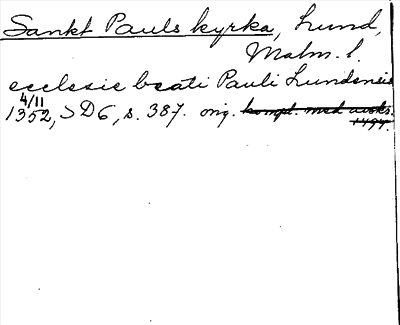 Sankt Pauls kyrka, Lund,
Malm. l.
ecclesie beati Pauli Lundensis
4/11
1352, SD6, s. 387. orig. kompl. med avskr.
1494.